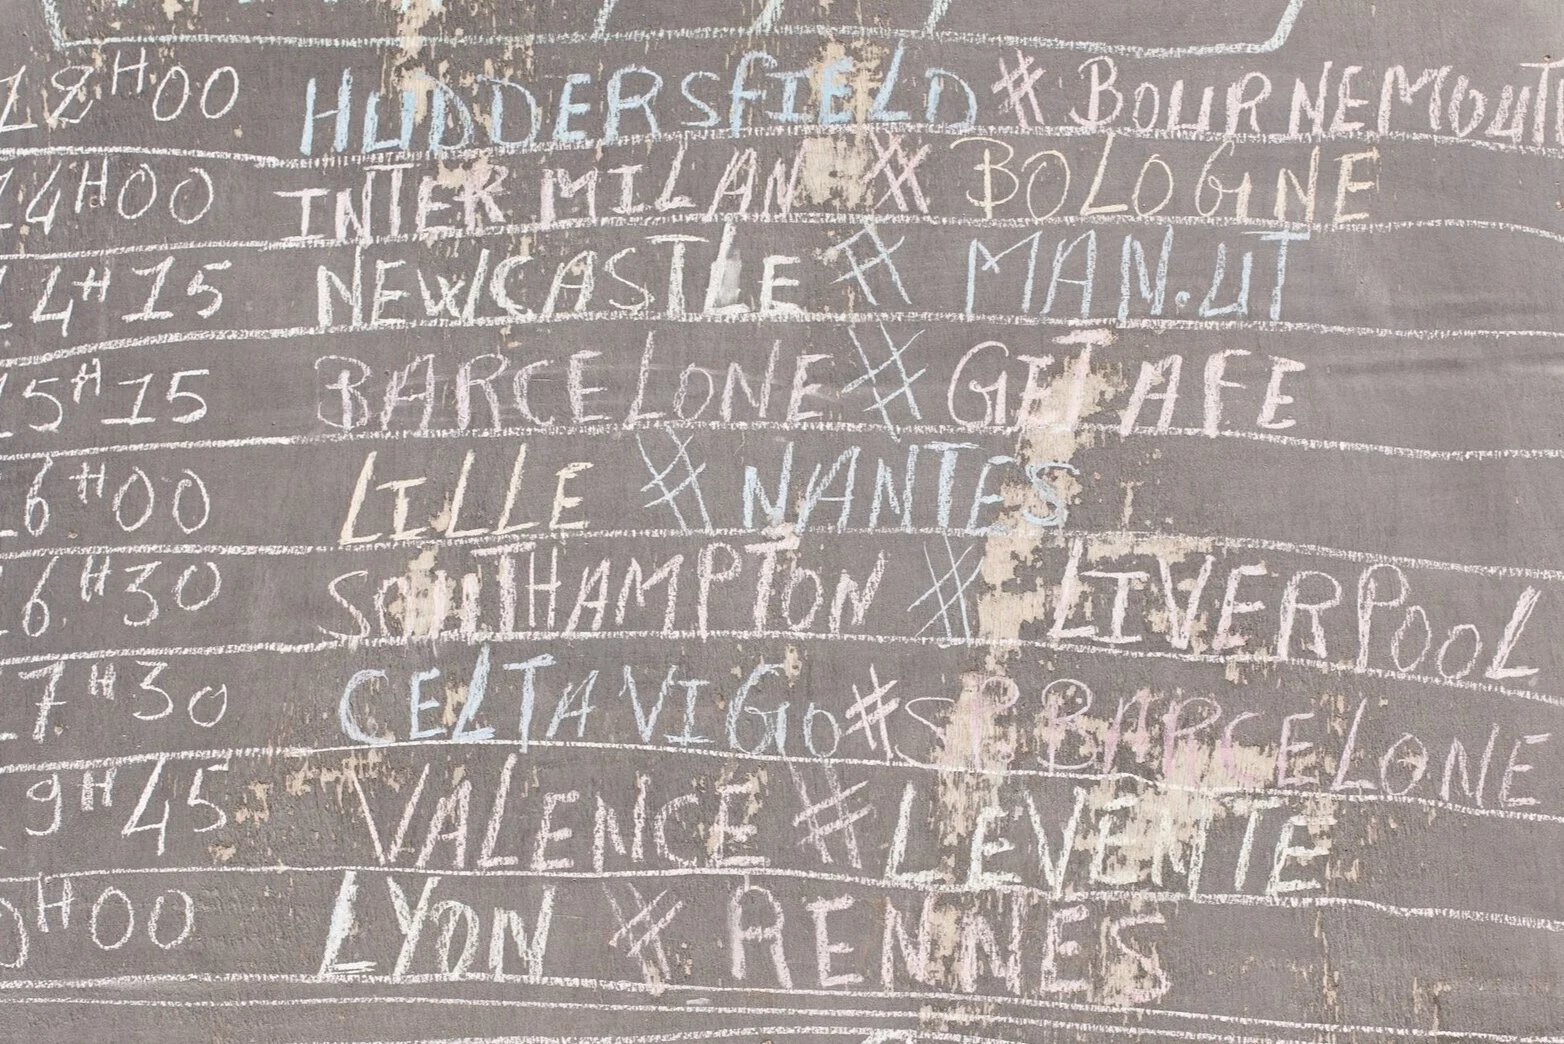 12H00 HUDDERSFIELD # BOURNEMOUT
14H00 INTER MILAN # BOLOGNE
14H15 NEWCASTLE # MAN.UT
15H15 BARCELONE # GETAFE
16H00 LILLE # NANTES
16H30 SOUTHAMPTON # LIVERPOOL
17H30 CELTA VIGO # SP BARCELONE
9H45 VALENCE # LEVENTE
0H00 LYON # RENNES